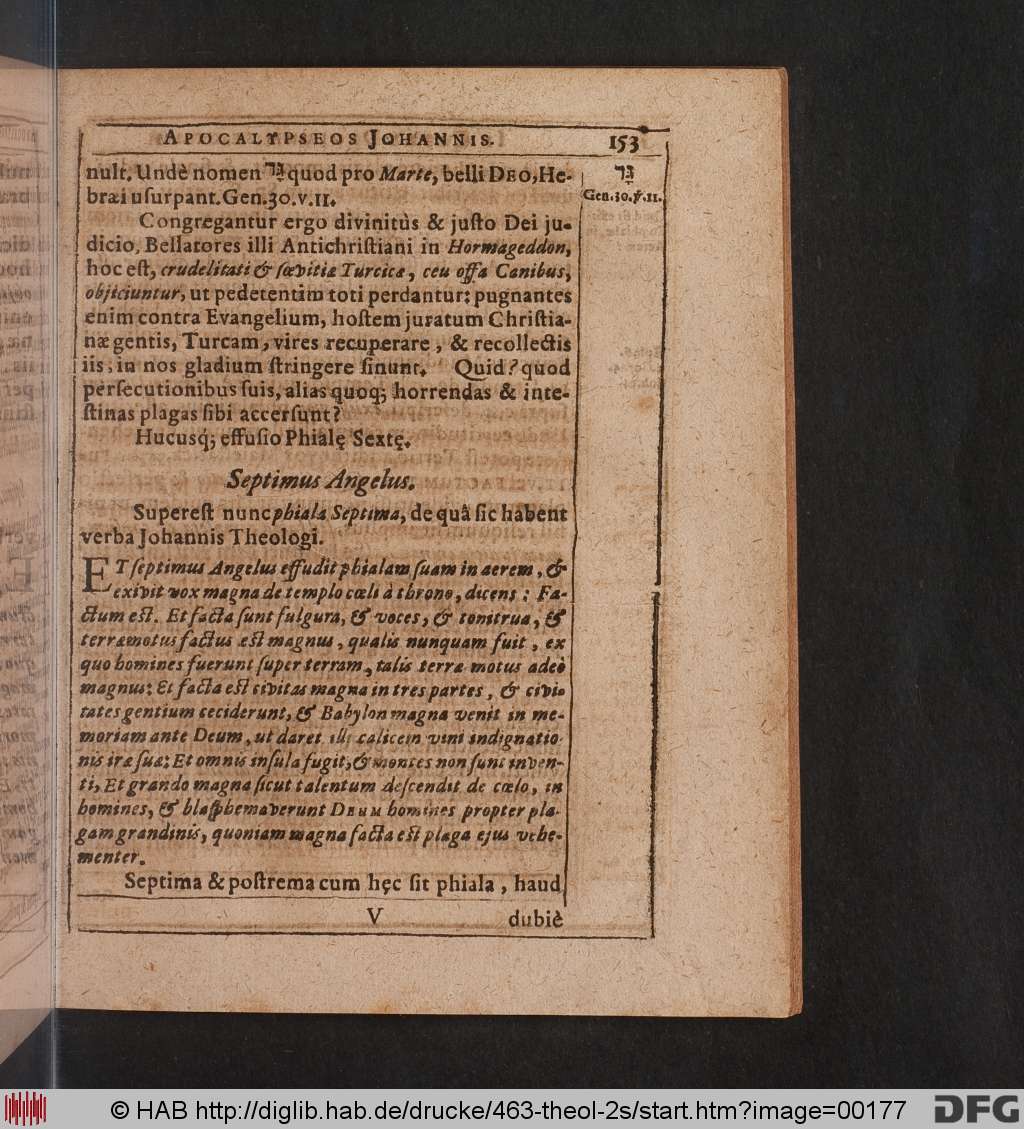 APOCALYPSEOS JOHANNIS. 153
nult. Undè nomen גָּד quod pro Marte, belli DEO, He-
bræi uſurpant. Gen. 30. v. 11.
גָּד
Gen. 30. ꝟ. 11.
Congregantur ergo divinitùs & juſto Dei ju-
dicio, Bellatores illi Antichriſtiani in Hormageddon,
hoc eſt, crudelitati & ſævitiæ Turcicæ, ceu offa Canibus,
objiciuntur, ut pedetentim toti perdantur: pugnantes
enim contra Evangelium, hoſtem juratum Chriſtia-
næ gentis, Turcam, vires recuperare, & recollectis
iis, in nos gladium ſtringere ſinunt. Quid? quod
perſecutionibus ſuis, alias quoq; horrendas & inte-
ſtinas plagas ſibi accerſunt?
Hucusq́; effuſio Phialę Sextę.
Septimus Angelus.
Supereſt nunc phiala Septima, de quâ ſic habent
verba Johannis Theologi.
ET ſeptimus Angelus effudit phialam ſuam in aerem, &
exivit vox magna de templo cœli à throno, dicens: Fa-
ctum eſt. Et facta ſunt fulgura, & voces, & tonitrua, &
terræmotus factus eſt magnus, qualis nunquam fuit, ex
quo homines fuerunt ſuper terram, talis terræ motus adeò
magnus: Et facta eſt civitas magna in tres partes, & civi-
tates gentium ceciderunt, & Babylon magna venit in me-
moriam ante Deum, ut daret illi calicem vini indignatio-
nis iræ ſuæ: Et omnis inſula fugit, & montes non ſunt inven-
ti, Et grando magna ſicut talentum deſcendit de cœlo, in
homines, & blaſphemaverunt DEUM homines propter pla-
gam grandinis, quoniam magna facta eſt plaga ejus vehe-
menter.
Septima & poſtrema cum hęc ſit phiala, haud
V dubiè
© HAB http://diglib.hab.de/drucke/463-theol-2s/start.htm?image=00177 DFG